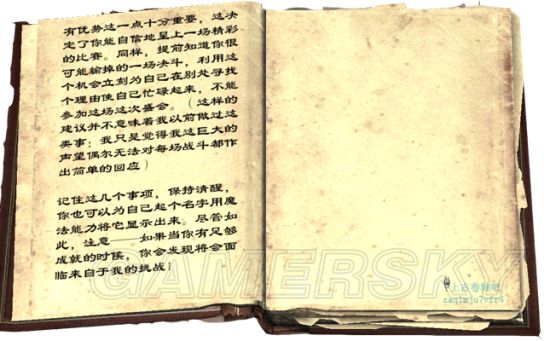 有优势这一点十分重要，这决
定了你能自信地呈上一场精彩
的比赛。同样，提前知道你很
可能输掉的一场决斗，利用这
个机会立刻为自己在别处寻找
个理由使自己忙碌起来，不能
参加这场这次盛会。（这样的
建议并不意味着我以前做过这
类事；我只是觉得我这巨大的
声望偶尔无法对每场战斗都作
出简单的回应）
记住这几个事项，保持清醒，
你也可以为自己起个名字用魔
法能力将它显示出来。尽管如
此，注意——如果当你有足够
成就的时候，你会发现将会面
临来自于我的挑战！
GAMERSKY
上古卷轴吧
zaq1mju7vfr4